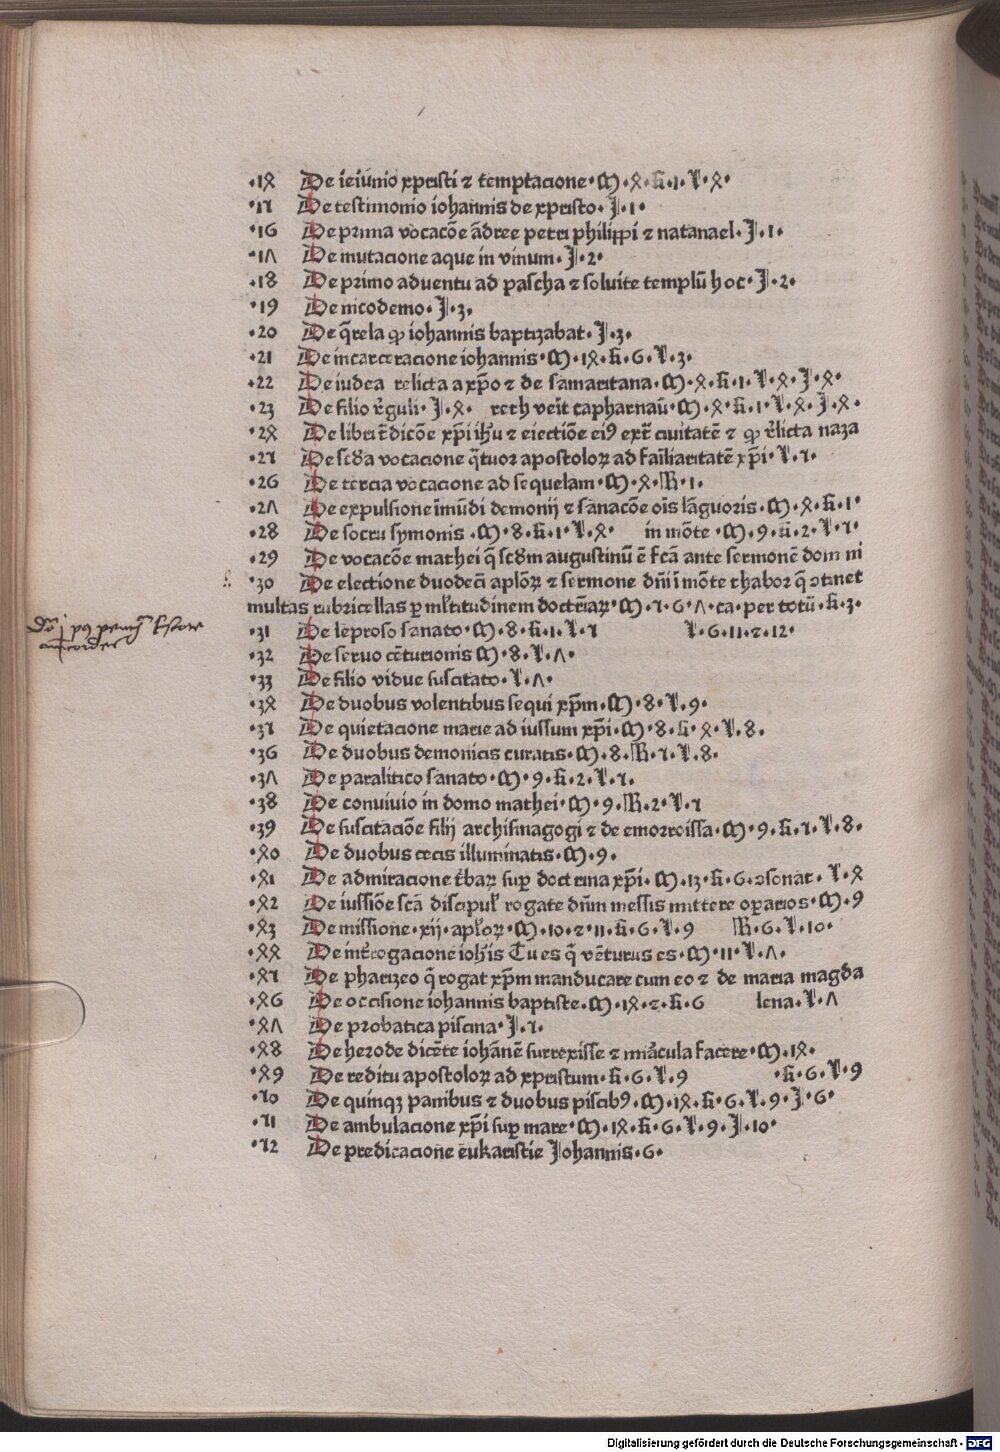 ·14 De ieiunio xpristi ⁊ temptacione· M·4·k·1·L·4·
·15 De testimonio iohannis de xpristo· J·1·
·16 De prima vocacōe ādree petri philippi ⁊ natanael· J·1·
·17 De mutacione aque in vinum· J·2·
·18 De primo aduentu ad pascha ⁊ soluite templū hoc· J·2·
·19 De nicodemo· J·3·
·20 De q̄rela ꝙ iohannis baptizabat· J·3·
·21 De incarceracione iohannis· M·14·k·6·L·3·
·22 De iudea relicta a xp̄o ⁊ de samaritana· M·4·k·1·L·4·J·4·
·23 De filio r̄guli· J·4· reth veīt capharnaū· M·4·k·1·L·4·J·4·
·24 De libri r̄dicōe xp̄i ih̄u ⁊ eiectiōe eiꝰ ext̄ ciuitatē ⁊ ꝙ r̄licta naza
·25 De sc̄da vocacione q̄tuor apostoloꝝ ad fam̄iliaritatē xp̄i· L·5·
·26 De tercia vocacione ad sequelam· M·4·MR·1·
·27 De expulsione īmūdi demonij ⁊ sanacōe oīs lāguoris· M·4·k·1·
·28 De socru symonis· M·8·k·1·L·4· in mōte· M·9·k·2·L·5·
·29 De vocacōe mathei q̄ scd̄m augustinū ē fc̄a ante sermonē dom ni
·30 De electione duodecī apl̄oꝝ ⁊ sermone dn̄i ī mōte thabor q̄ ꝯtinet
multas rubricellas ꝑ ml̄titudinem doctrīaꝝ· M·5·6·7·ca·per totū·k·3·
·31 De leproso sanato· M·8·k·1·L·5 L·6·11·⁊·12·
·32 De seruo cēturionis M·8·L·7·
·33 De filio vidue suscitato· L·7·
·34 De duobus volentibus sequi xp̄m· M·8·L·9·
·35 De quietacione maris ad iussum xp̄i· M·8·k·4·L·8·
·36 De duobus demonicis curatis· M·8·MR·5·L·8·
·37 De paralitico sanato· M·9·k·2·L·5·
·38 De conuiuio in domo mathei· M·9·MR·2·L·5
·39 De suscitaciōe filij archisinagogi ⁊ de emorroissa· M·9·k·5·L·8·
·40 De duobus cecis illuminatis· M·9·
·41 De admiracione t̄baꝝ suꝑ doctrina xp̄i· M·13·k·6·ꝯsonāt· L·4
·42 De iussiōe fc̄ā discipul̄ rogate dn̄m messis mittere oꝑarios· M·9
·43 De missione·xij·apl̄oꝝ· M·10·⁊·11·k·6·L·9 MR·6·L·10·
·44 De int̄rogacione ioh̄is Tu es q̄ vēturus es· M·11·L·7·
·45 De phariseo q̄ rogat xp̄m manducare cum eo ⁊ de maria magda
·46 De occisione iohannis baptiste· M·14·⁊·k·6 lena· L·7
·47 De probatica piscina· J·5·
·48 De herode dicēte iohānē surrexisse ⁊ mīacula facere· M·14·
·49 De reditu apostoloꝝ ad xpristum· k·6·L·9 ·k·6·L·9
·50 De quinqꝫ panibus ⁊ duobus piscibꝰ· M·14·k·6·L·9·J·6·
·51 De ambulacione xp̄i suꝑ mare· M·14·k·6·L·9·J·10·
·52 De predicacione eukaristie Johannis·6·
Digitalisierung gefördert durch die Deutsche Forschungsgemeinschaft · DFG